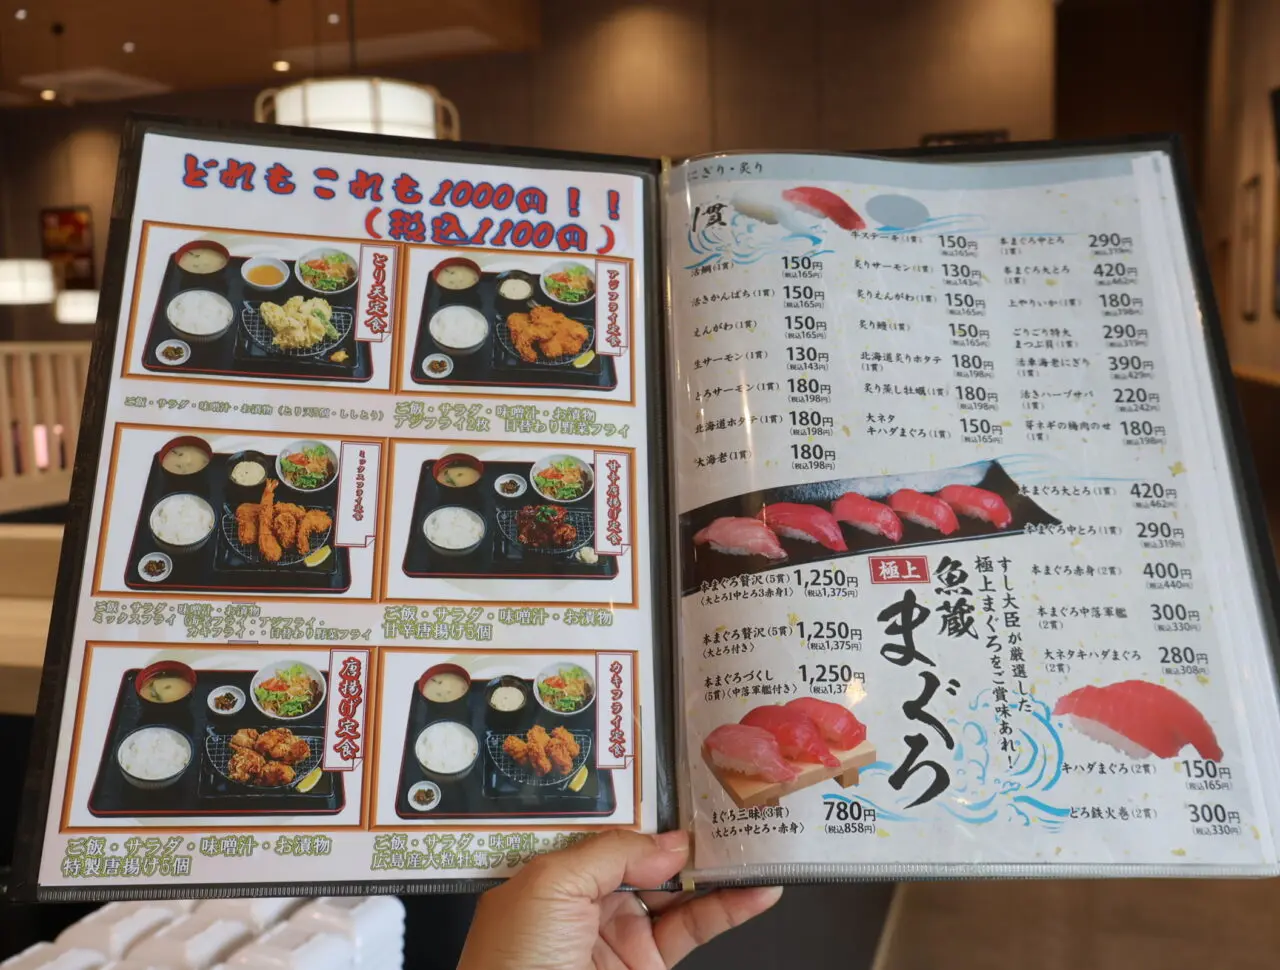 どれもこれも1000円！！
（税込1100円）
とり天定食
ご飯・サラダ・味噌汁・お漬物（とり天5個・ししとう）
アジフライ定食
ご飯・サラダ・味噌汁・お漬物
アジフライ2枚 日替わり野菜フライ
ミックスフライ定食
ご飯・サラダ・味噌汁・お漬物
ミックスフライ（海老フライ・アジフライ・
カキフライ・日替わり野菜フライ
甘辛唐揚げ定食
ご飯・サラダ・味噌汁・お漬物
甘辛唐揚げ5個
唐揚げ定食
ご飯・サラダ・味噌汁・お漬物
特製唐揚げ5個
カキフライ定食
ご飯・サラダ・味噌汁・お漬物
広島産大粒牡蠣フライ
にぎり・炙り
1貫
活鯛(1貫) 150円 (税込165円)
活きかんぱち(1貫) 150円 (税込165円)
えんがわ(1貫) 150円 (税込165円)
生サーモン(1貫) 130円 (税込143円)
とろサーモン(1貫) 180円 (税込198円)
北海道ホタテ(1貫) 180円 (税込198円)
大海老(1貫) 180円 (税込198円)
牛ステーキ(1貫) 150円 (税込165円)
炙りサーモン(1貫) 130円 (税込143円)
炙りえんがわ(1貫) 150円 (税込165円)
炙り鰻(1貫) 150円 (税込165円)
北海道炙りホタテ(1貫) 180円 (税込198円)
炙り蒸し牡蠣(1貫) 180円 (税込198円)
大ネタ
キハダまぐろ(1貫) 150円 (税込165円)
本まぐろ中とろ(1貫) 290円 (税込319円)
本まぐろ大とろ(1貫) 420円 (税込462円)
上やりいか(1貫) 180円 (税込198円)
ごりごり特大
まつぶ貝(1貫) 290円 (税込319円)
活車海老にぎり(1貫) 390円 (税込429円)
活きハーブサバ(1貫) 220円 (税込242円)
芽ネギの梅肉のせ(1貫) 180円 (税込198円)
本まぐろ大とろ(1貫) 420円 (税込462円)
本まぐろ中とろ(1貫) 290円 (税込319円)
本まぐろ赤身(2貫) 400円 (税込440円)
本まぐろ中落軍艦(2貫) 300円 (税込330円)
大ネタキハダまぐろ(2貫) 280円 (税込308円)
キハダまぐろ(2貫) 150円 (税込165円)
とろ鉄火巻(2貫) 300円 (税込330円)
極上
魚蔵
まぐろ
すし大臣が厳選した
極上まぐろをご賞味あれ！
本まぐろ贅沢(5貫) 1,250円 (税込1,375円)
〈大とろ1中とろ3赤身1〉
本まぐろ贅沢(5貫) 1,250円 (税込1,375円)
〈大とろ付き〉
本まぐろづくし
(5貫)〈中落軍艦付き〉 1,250円
まぐろ三昧(3貫) 780円 (税込858円)
〈大とろ・中とろ・赤身〉